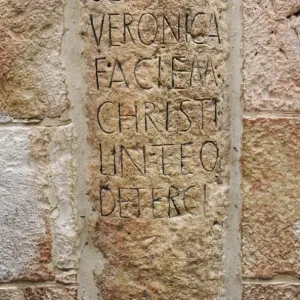 VERONICA
FACIEM
CHRISTI
LINTEO
DETERCI